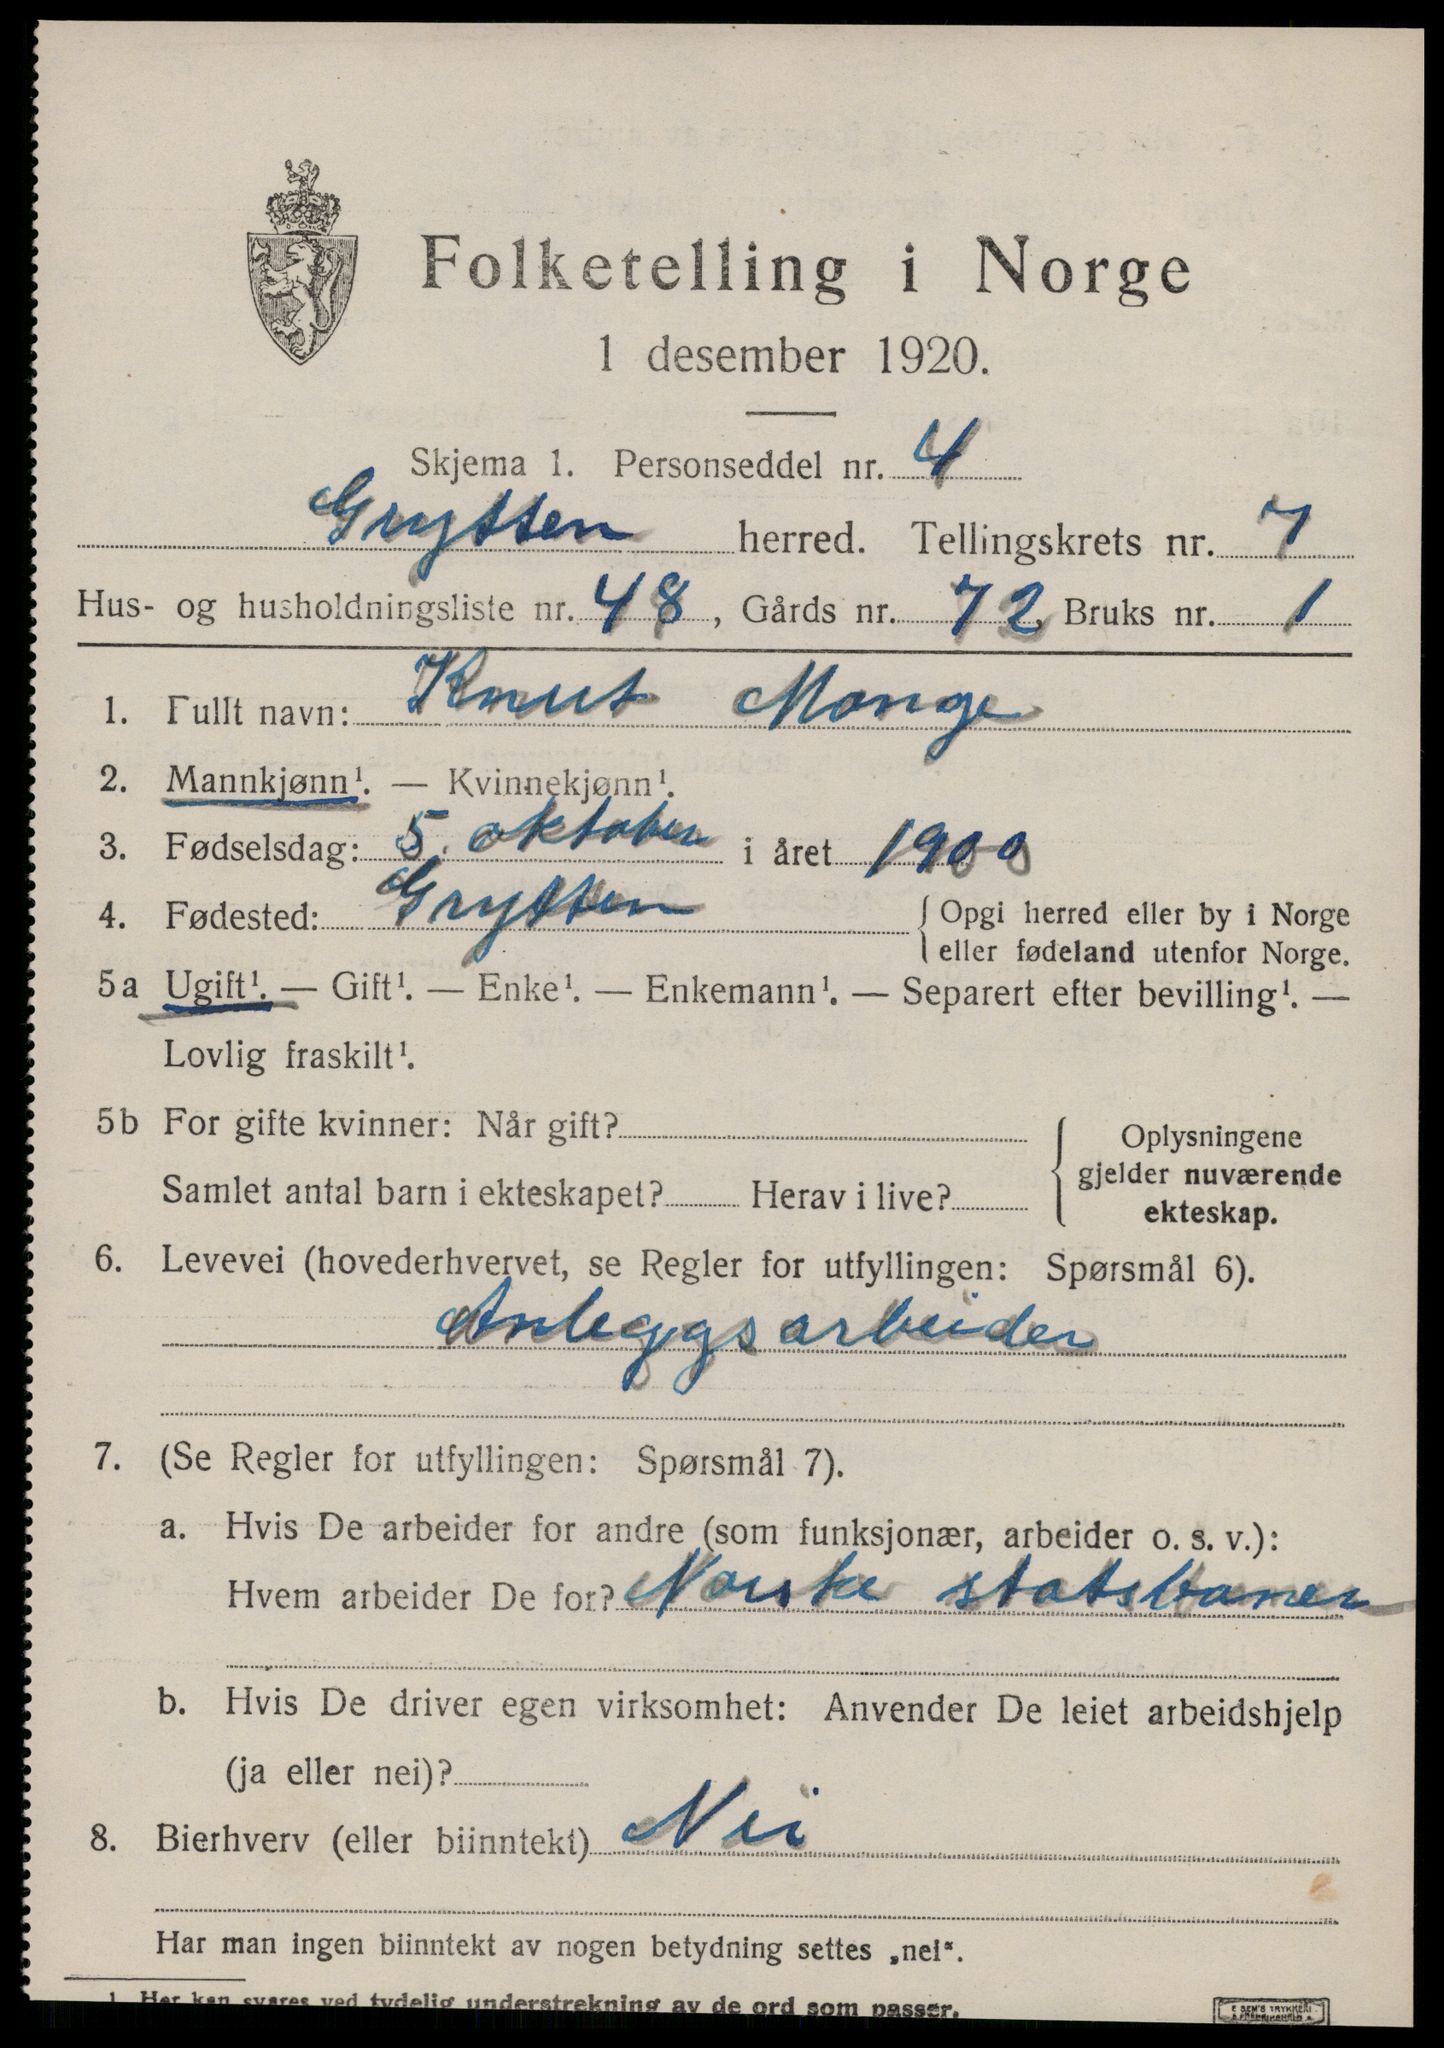 Folketelling i Norge
1 desember 1920.
Skjema 1. Personseddel nr. 4
Grytten herred. Tellingskrets nr. 7
Hus- og husholdningsliste nr. 48, Gårds nr. 72, Bruks nr. 1
1. Fullt navn: Knut Monge
2. Mannkjønn¹. — Kvinnekjønn¹.
3. Fødselsdag: 5. oktober i året 1900
4. Fødested: Grytten { Opgi herred eller by i Norge
eller fødeland utenfor Norge.
5a Ugift¹. — Gift¹. — Enke¹. — Enkemann¹. — Separert efter bevilling¹. —
Lovlig fraskilt¹.
5b For gifte kvinner: Når gift?
Samlet antal barn i ekteskapet? Herav i live?
Oplysningene
gjelder nuværende
ekteskap.
6. Levevei (hovederhvervet, se Regler for utfyllingen: Spørsmål 6).
Anleggsarbeider
7. (Se Regler for utfyllingen: Spørsmål 7).
a. Hvis De arbeider for andre (som funksjonær, arbeider o. s. v.):
Hvem arbeider De for? Norske statsbaner
b. Hvis De driver egen virksomhet: Anvender De leiet arbeidshjelp
(ja eller nei)?
8. Bierhverv (eller biinntekt) Nei
Har man ingen biinntekt av nogen betydning settes „nei“.
1 Her kan svares ved tydelig understrekning av de ord som passer.
E SEM'S TRYKKERI